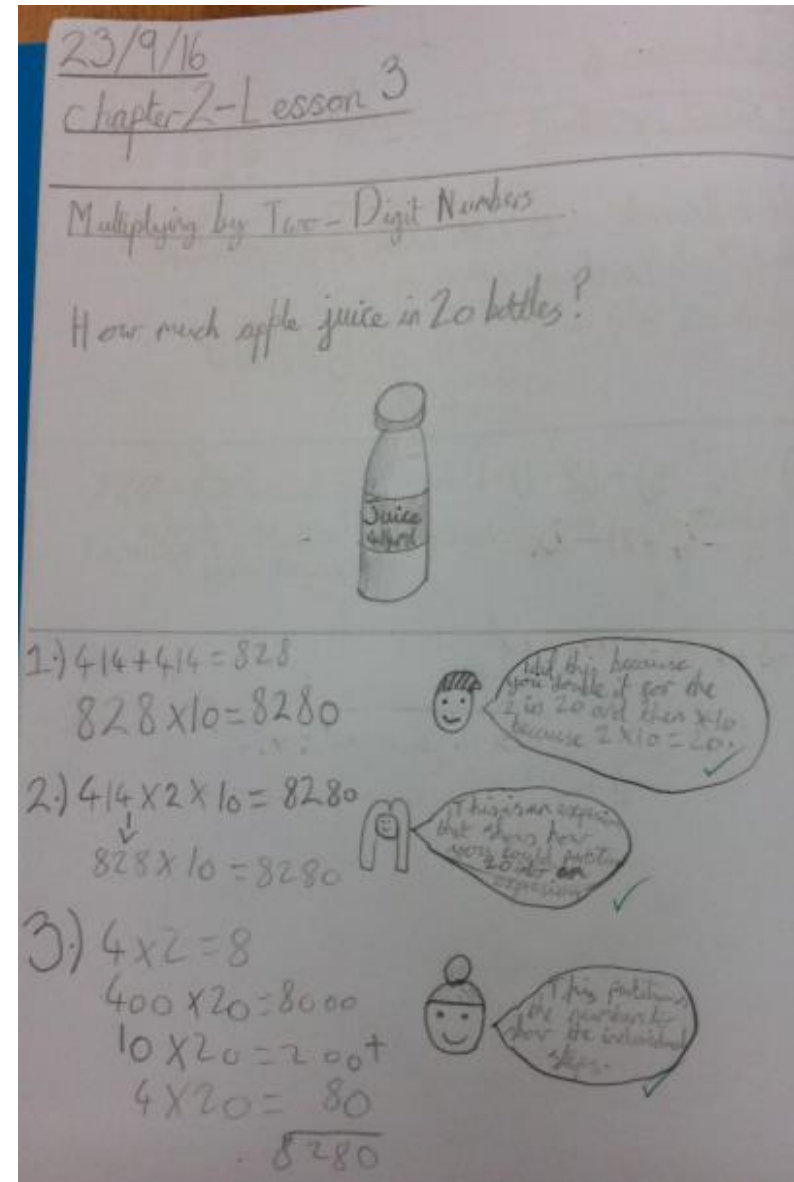 23/9/16
Chapter 2 - Lesson 3
Multiplying by Two-Digit Numbers
How much apple juice in 20 bottles?
Juice
1.) 414 + 414 = 828
828 x 10 = 8280
I did this because
you double it for the
2 in 20 and then x 10
because 2 x 10 = 20.
2.) 414 x 2 x 10 = 8280
828 x 10 = 8280
This is an
that shows how
you could
20 into an
3.) 4 x 2 = 8
400 x 20 = 8000
10 x 20 = 200 +
4 x 20 = 80
8280
This partitions
the numbers to
show the individual
steps.